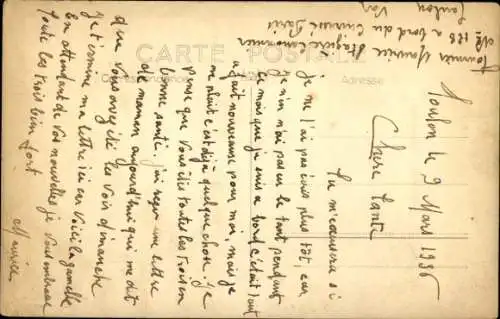 Fournier Maurice
Stagiaire canonnier
No 128 a bord du Courbet Paris
Toulon Var
CARTE POSTALE
Correspondance
Adresse
Toulon le 9 Mars 1936
Chere Tante
Tu m'excusera si
je ne t'ai pas écris plus tôt, car
je n'en n'ai pas eu le temps pendant
ce mois que je suis a bord c'était tout
a fait nouveause pour moi, mais je
me plait c'est déjà quelque chose. Je
pense que vous ete toutes les trois en
bonne santé. J'ai reçu une lettre
de maman aujourd'hui qui me dit
que vous avez été les voir dimanche
Je termine ma lettre ici car voici la gamelle
En attendant de vos nouvelles je vous embrasse
toute les trois bien fort
Maurice